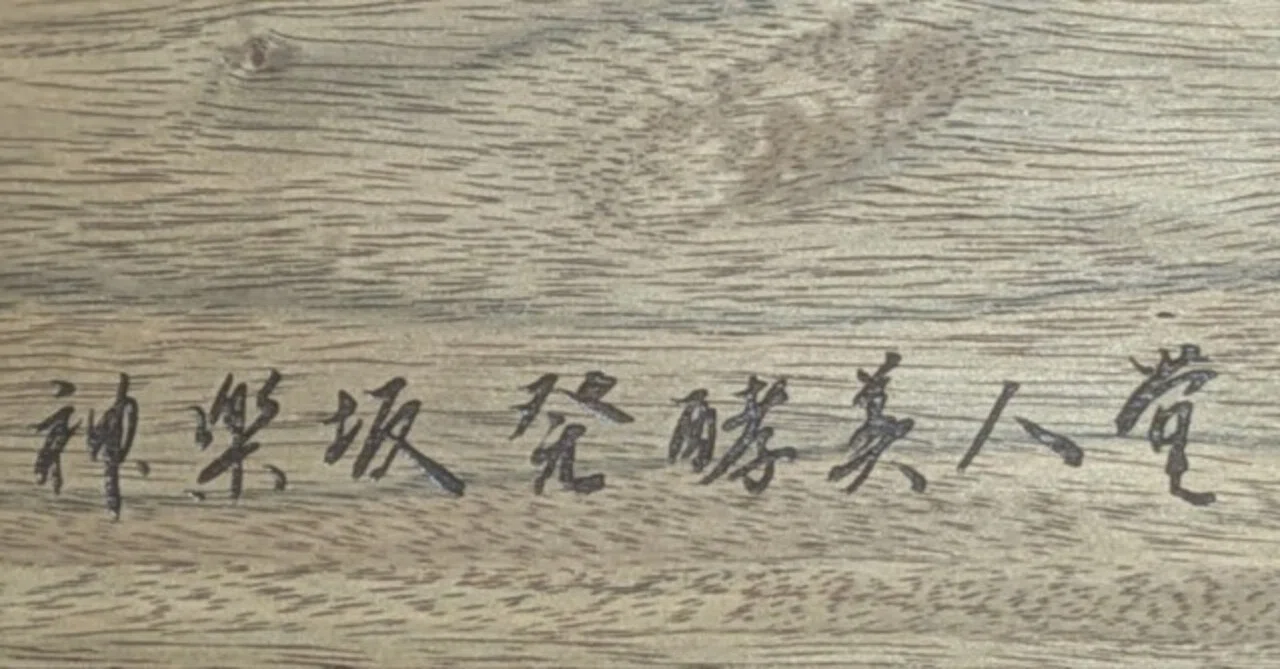 神楽坂 発酵美人堂